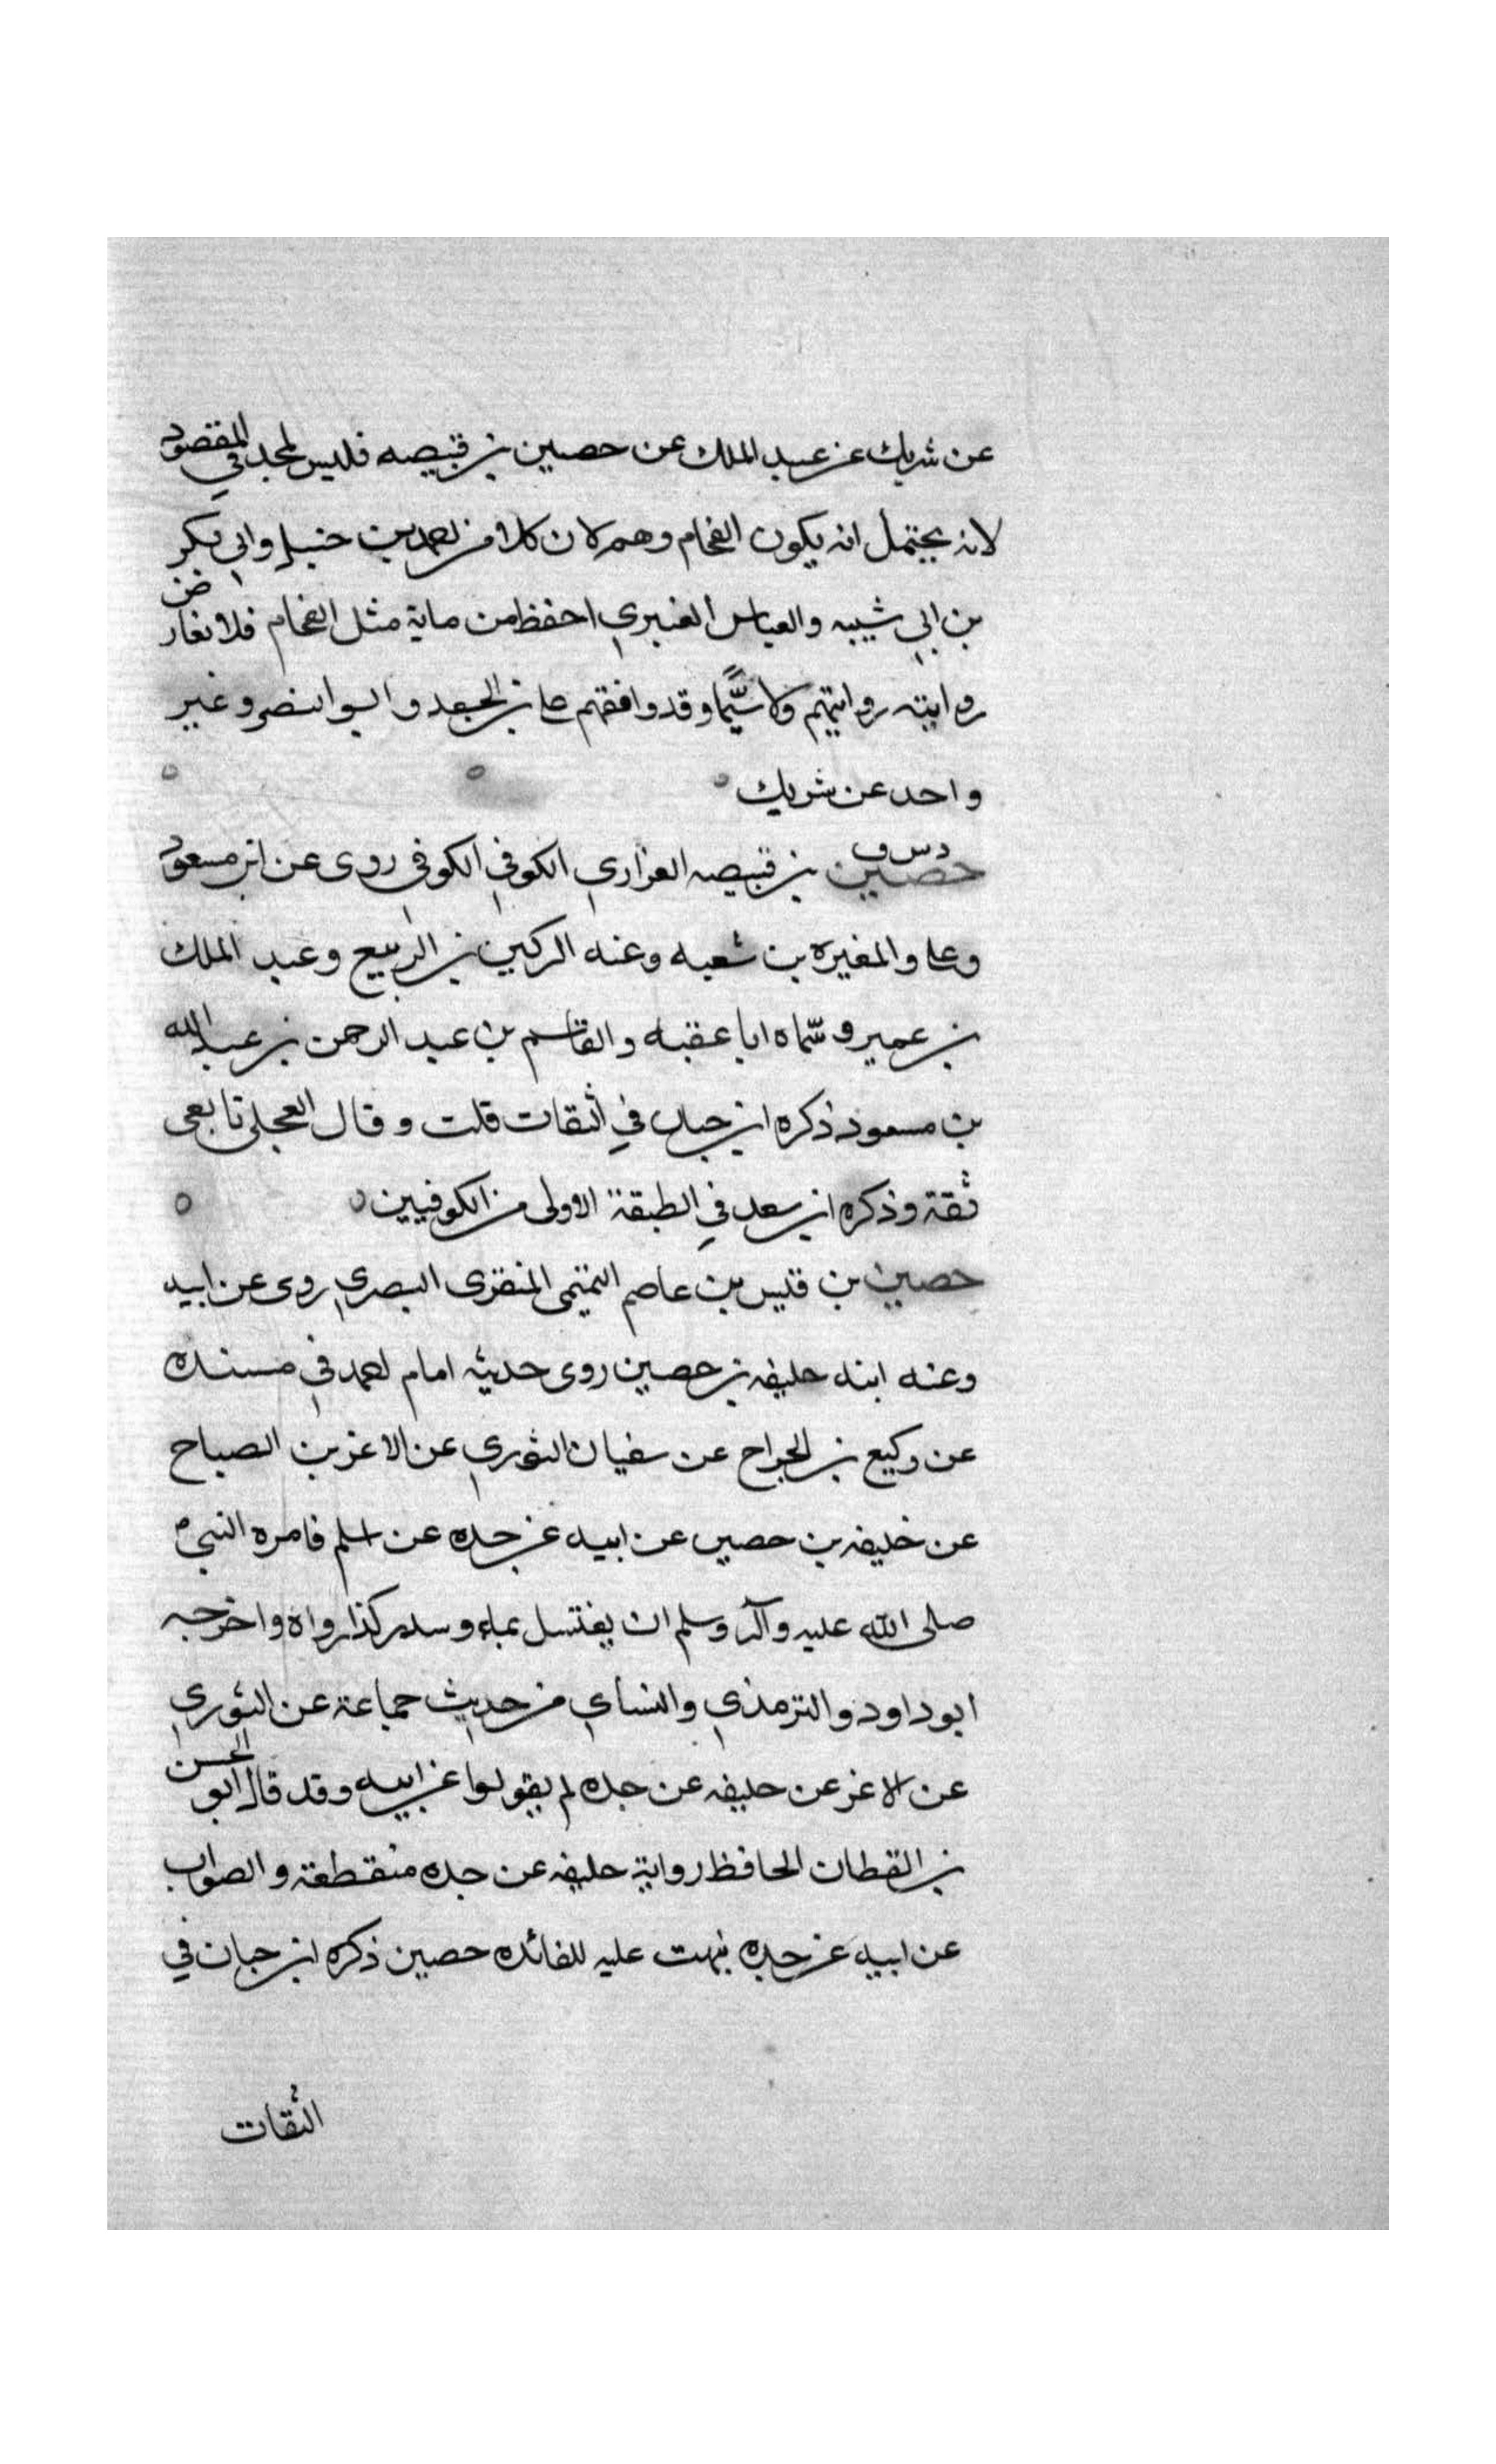 عن شريك عن عبد الملك عن حصين بن قبيصه فليس بمجد في المقصود
لانه يحتمل انه يكون الفحام وهم لان كلا من احمد بن حنبل وابي بكر
بن ابي شيبه والعباس العنبري احفظ من ماية مثل الفحام فلا تعارض
روايته روايتهم ولا سيما وقد وافقهم على بن الجعد وابو النضر وغير
واحد عن شريك
د س ق
حصين بن قبيصه الفزاري الكوفي الكوفي روى عن ابن مسعود
وعلى والمغيره بن شعبه وعنه الركين بن الربيع وعبد الملك
بن عمير وسماه ابا عقبه والقاسم بن عبد الرحمن بن عبد الله
بن مسعود ذكره ابن حبان في الثقات قلت وقال العجلى تابعى
ثقة وذكره ابن سعد في الطبقة الاولى من الكوفيين
حصين بن قيس بن عاصم التميمى المنقرى البصري روى عن ابيه
وعنه ابنه خليفه بن حصين روى حديثه امام احمد في مسنده
عن وكيع بن الجراح عن سفيان الثوري عن الاغر بن الصباح
عن خليفه بن حصين عن ابيه عن جده عن اسلم فامره النبي
صلى الله عليه وآله وسلم ان يغتسل بماء وسدر كذا رواه واخرجه
ابو داود والترمذي والنساي من حديث جماعة عن الثوري
عن الاغر عن خليفه عن جده لم يقولوا عن ابيه وقد قال ابو الحسن
بن القطان الحافظ رواية خليفه عن جده منقطعة والصواب
عن ابيه عن جده نبهت عليه للفائده حصين ذكره ابن حبان في
الثقات